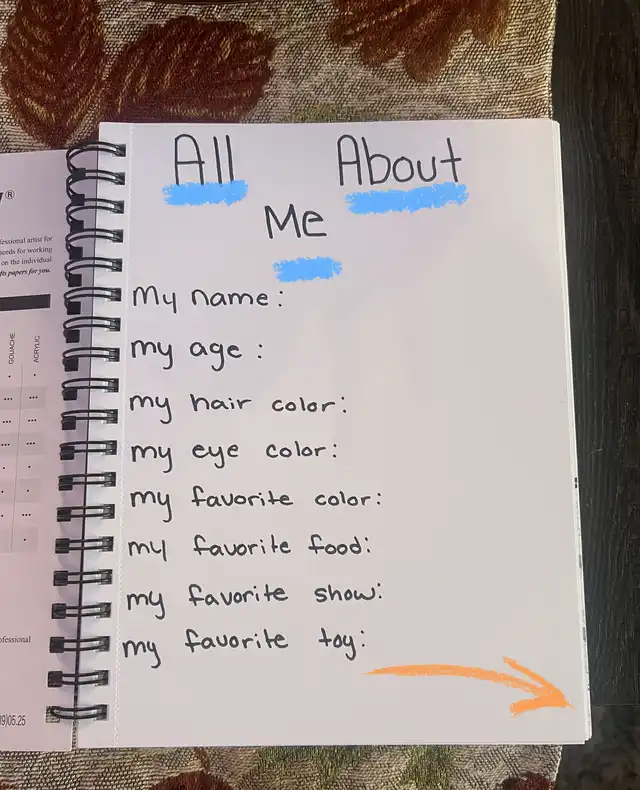 All About
Me
My name:
my age:
my hair color:
my eye color:
my favorite color:
my favorite food:
my favorite show:
my favorite toy:
®
fessional artist for
needs for working
on the individual
papers for you.
GOUACHE
ACRYLIC
ofessional
05.25